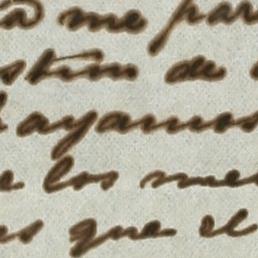 a me par
stim de
hayamos
e los me
es que el